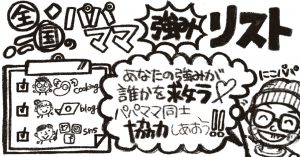 全国のパパママ強みリスト
coding
blog
sns
あなたの強みが
誰かを救ナラ♡
パパママ同士
協力しあおう!!
にこパパ